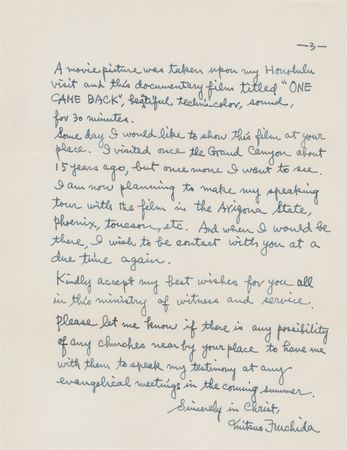 —3—
A movie picture was taken upon my Honolulu
visit and this documentary film titled "ONE
CAME BACK", beautiful techni-color, sound,
for 30 minutes.
Some day I would like to show this film at your
place. I visited once the Grand Canyon about
15 years ago, but once more I want to see.
I am now planning to make my speaking
tour with the film in the Arizona State,
phoenix, toucson, etc. And when I would be
there, I wish to be contact with you at a
due time again.
Kindly accept my best wishes for you all
in this ministry of witness and service.
please let me know if there is any possibility
of any churches near by your place to have me
with them to speak my testimony at any
evangelical meetings in the coming summer.
Sincerely in Christ,
Mitsuo Fuchida